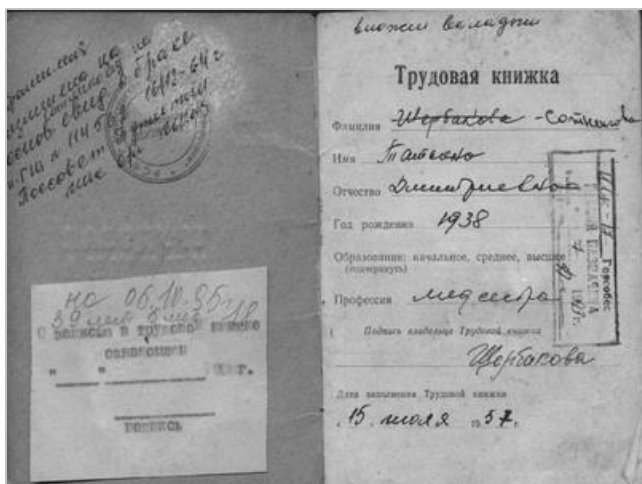 фамилия
изменена на
на основ. свид. о браке
Поссовет
на 06.10.95г.
39 лет 8 мес 18
С записью в трудовой книжке
ознакомлен
" " г.
подпись
вложен вкладыш
Трудовая книжка
Фамилия Щербакова - Сотникова
Имя Татьяна
Отчество Дмитриевна
Год рождения 1938
Образование: начальное, среднее, высшее
(подчеркнуть)
Профессия медсестра
Подпись владельца Трудовой книжки
Щербакова
Дата заполнения Трудовой книжки
"15" июля 1957 г.
Горсобес